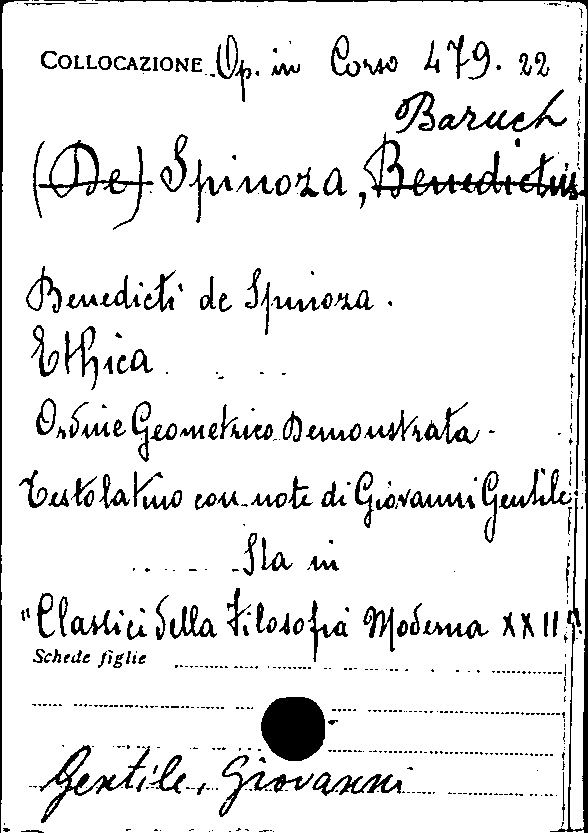 COLLOCAZIONE Op. in Corso 479. 22
Baruch
(De) Spinoza, Benedictus.
Benedicti de Spinoza.
Ethica
Ordine Geometrico Demonstrata.
Testo latino con note di Giovanni Gentile
Sta in
"Classici della Filosofia Moderna XXII"
Schede figlie
Gentile, Giovanni